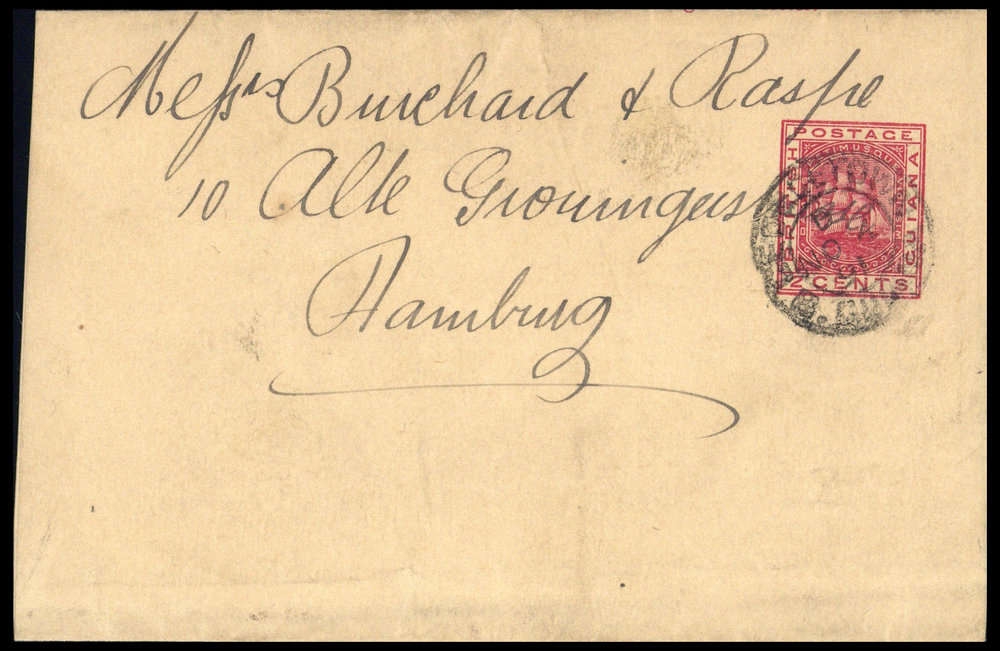 Messrs Burchard & Raspe
10 Alte Groningerst
Hamburg
POSTAGE
BRITISH
GUIANA
2 CENTS